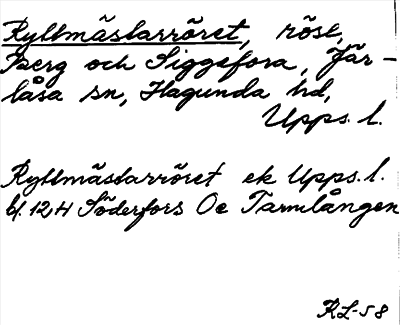 Ryttmästarröret, röse,
Berg och Siggefora, Jär-
låsa sn, Hagunda hd,
Upps. l.
Ryttmästarröret ek Upps. l.
bl. 12,H Söderfors Oe Tarmlången
RL-58